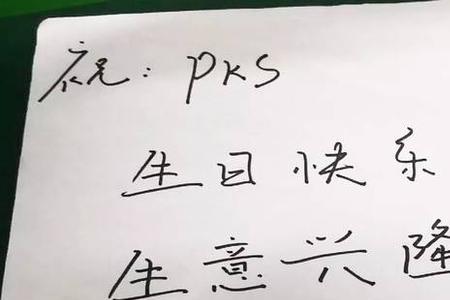 祝：PKS
生日快乐
生意兴隆